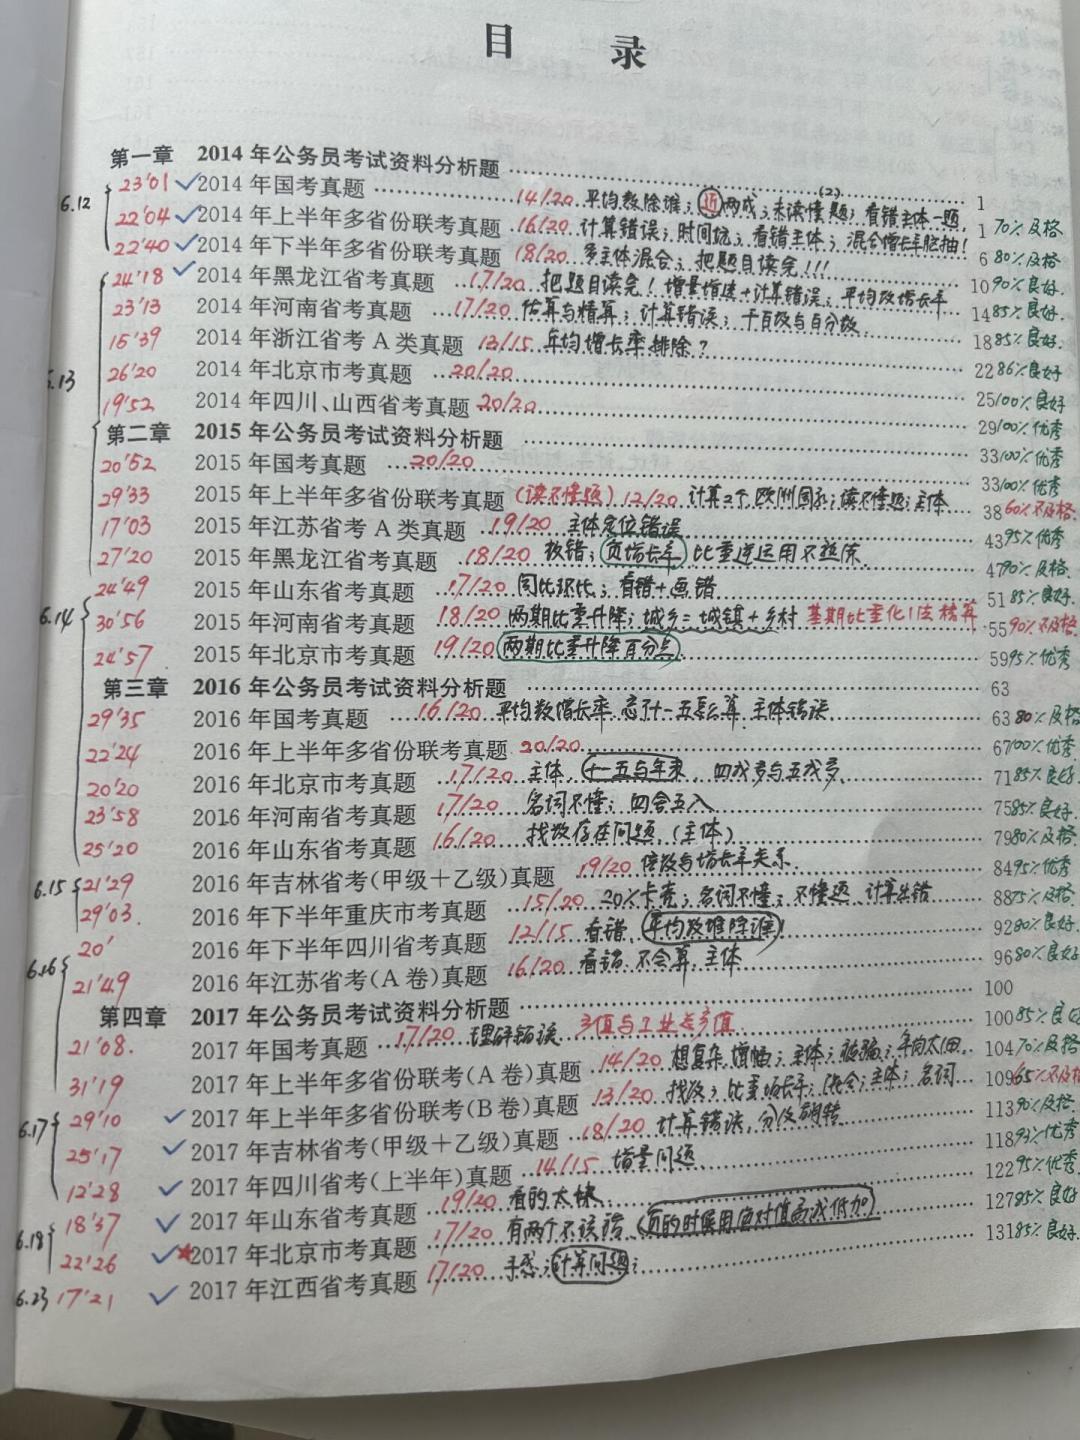 目 录
第一章 2014年公务员考试资料分析题 1
6.12 23'01 ✓ 2014年国考真题 14/20 平均数除谁；近两成；未读懂题；看错主体一题 (2) 1 70%及格
22'04 ✓ 2014年上半年多省份联考真题 16/20 计算错误；时间坑；看错主体；混合增长率脑抽！ 6 80%及格
22'40 ✓ 2014年下半年多省份联考真题 18/20 多主体混合；把题目读完!!! 10 90%良好
24'18 ✓ 2014年黑龙江省考真题 17/20 把题目读完！增量增速+计算错误；平均数增长率 14 85%良好
23'13 2014年河南省考真题 17/20 估算与精算；计算错误；千百数与百分数 18 85%良好
15'39 2014年浙江省考A类真题 13/15 年均增长率排除？ 22 86%良好
6.13 26'20 2014年北京市考真题 20/20 25 100%良好
19'52 2014年四川、山西省考真题 20/20 29 100%优秀
第二章 2015年公务员考试资料分析题 33 100%优秀
20'52 2015年国考真题 20/20 33 100%优秀
29'33 2015年上半年多省份联考真题 (读不懂题) 12/20 计算2个，欧洲国家；读不懂题；主体 38 60%不及格
17'03 2015年江苏省考A类真题 19/20 主体定位错误 43 95%优秀
27'20 2015年黑龙江省考真题 18/20 数错；负增长率 比重逆运用不熟练 47 90%及格
24'49 2015年山东省考真题 17/20 同比环比；看错+画错 51 85%良好
6.14 30'56 2015年河南省考真题 18/20 两期比重升降；城乡=城镇+乡村 基期比重化1法精算 55 90%不及格
24'57 2015年北京市考真题 19/20 两期比重升降百分点 59 95%优秀
第三章 2016年公务员考试资料分析题 63
29'35 2016年国考真题 16/20 平均数增长率 十一五怎么算 主体错误 63 80%及格
22'24 2016年上半年多省份联考真题 20/20 67 100%优秀
20'20 2016年北京市考真题 17/20 主体，十一五与年末 四成多与五成多 71 85%良好
23'58 2016年河南省考真题 17/20 名词不懂；四舍五入 75 85%良好
25'20 2016年山东省考真题 16/20 找数存在问题（主体） 79 80%及格
6.15 21'29 2016年吉林省考（甲级+乙级）真题 19/20 倍数与增长率关系 84 95%优秀
29'03 2016年下半年重庆市考真题 15/20 20%卡壳；名词不懂；不懂选 计算出错 88 75%及格
20' 2016年下半年四川省考真题 12/15 看错 平均数谁除谁！ 92 80%良好
6.16 21'49 2016年江苏省考（A卷）真题 16/20 看错 不会算 主体 96 80%良好
第四章 2017年公务员考试资料分析题 100
21'08 2017年国考真题 17/20 理解错误 产值与工业总产值 100 85%良好
31'19 2017年上半年多省份联考（A卷）真题 14/20 想复杂，增幅；主体； 104 70%及格
6.17 29'10 ✓ 2017年上半年多省份联考（B卷）真题 13/20 找数；比重增长率；混合；主体；名词 109 65%不及格
25'17 ✓ 2017年吉林省考（甲级+乙级）真题 18/20 计算错误， 113 90%及格
12'28 ✓ 2017年四川省考（上半年）真题 14/15 增量问题 118 93%优秀
6.18 18'37 ✓ 2017年山东省考真题 19/20 看的太快 122 95%优秀
22'26 ✓ ★ 2017年北京市考真题 17/20 有两个不该错（负的时候用绝对值高或低加） 127 85%良好
6.23 17'21 ✓ 2017年江西省考真题 17/20 手感；计算问题； 131 85%良好